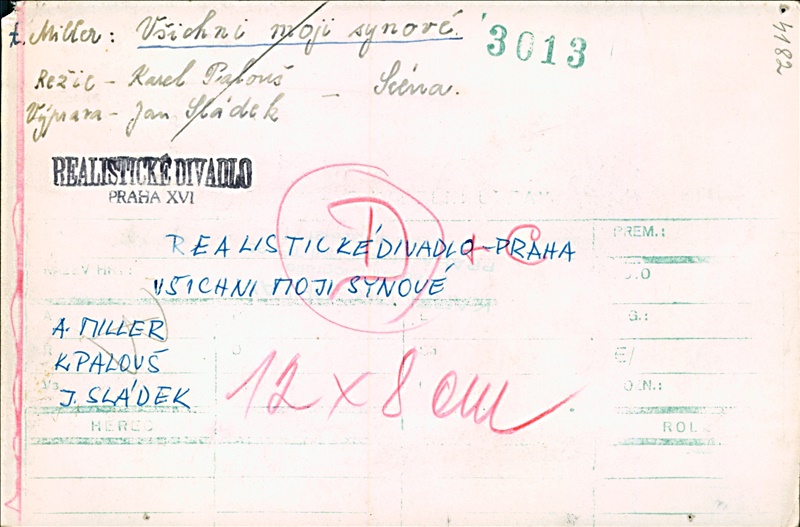 Miller: Všichni moji synové.
3013
4182
Režie - Karel Palouš
Výprava - Jan Sládek
- Scéna.
REALISTICKÉ DIVADLO
PRAHA XVI
D + C
REALISTICKÉ DIVADLO - PRAHA
PREM.:
VŠICHNI MOJI SYNOVÉ
A. MILLER
K. PALOUŠ
J. SLÁDEK
12 x 8 cm
HEREC
ROL